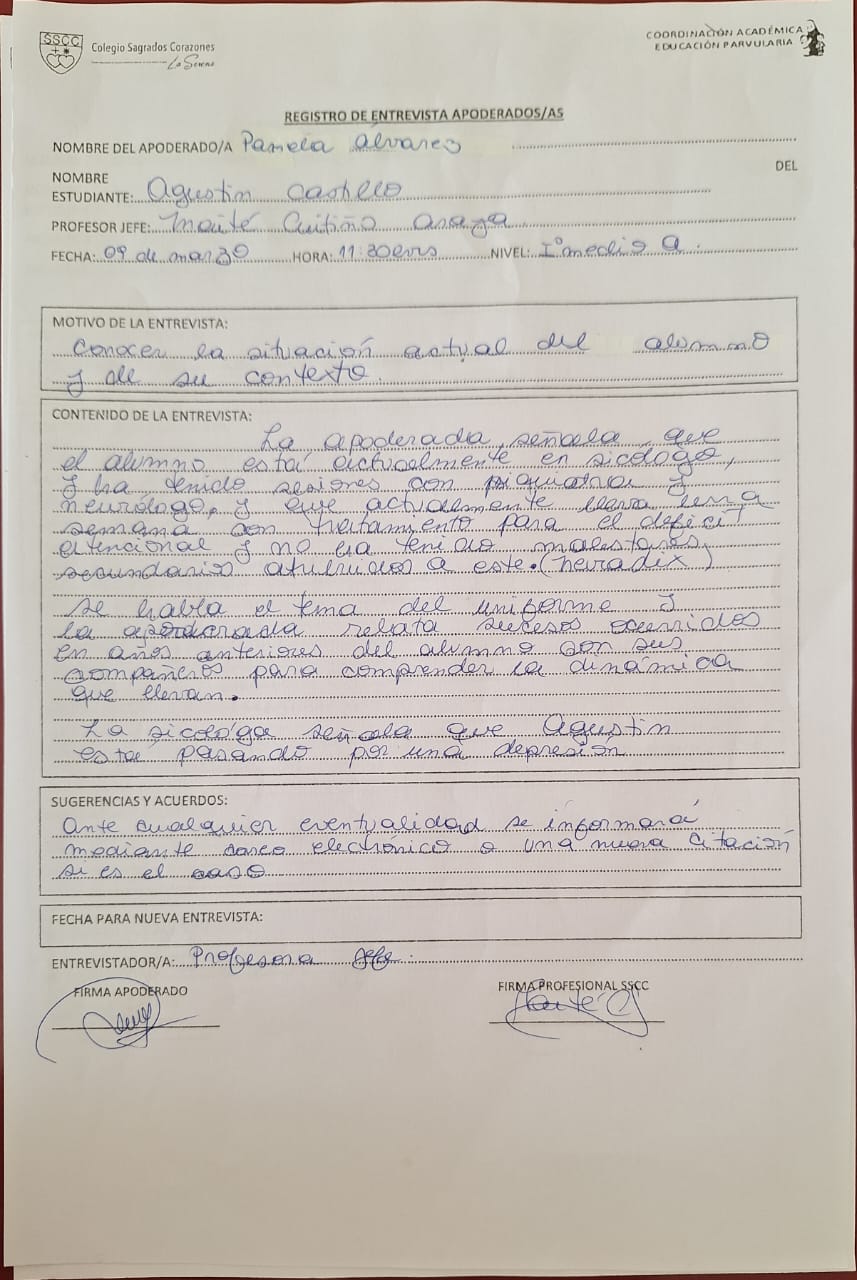 SSCC
Colegio Sagrados Corazones
La Serena
COORDINACIÓN ACADÉMICA
EDUCACIÓN PARVULARIA
REGISTRO DE ENTREVISTA APODERADOS/AS
NOMBRE DEL APODERADO/A Pamela Álvarez
NOMBRE DEL
ESTUDIANTE: Agustin Castillo
PROFESOR JEFE: Maité Cuitiño Araya
FECHA: 09 de marzo HORA: 11:30 hrs NIVEL: Iº medio A.
MOTIVO DE LA ENTREVISTA:
Conocer la situación actual del alumno
y de su contexto.
CONTENIDO DE LA ENTREVISTA:
La apoderada señala que
el alumno está actualmente en sicólogo,
y ha tenido sesiones con psiquiatra y
neurólogo, y que actualmente lleva una
semana con tratamiento para el deficit
atencional y no ha tenido malestares
secundarios atribuidos a este. (neuradix)
Se habla el tema del uniforme y
la apoderada relata sucesos ocurridos
en años anteriores del alumno con sus
compañeros para comprender la dinámica
que llevan.
La sicóloga señala que Agustin
está pasando por una depresión
SUGERENCIAS Y ACUERDOS:
Ante cualquier eventualidad se informará
mediante correo electrónico o una nueva citación
si es el caso
FECHA PARA NUEVA ENTREVISTA:
ENTREVISTADOR/A: Profesora Jefe.
FIRMA APODERADO FIRMA PROFESIONAL SSCC
Maité C